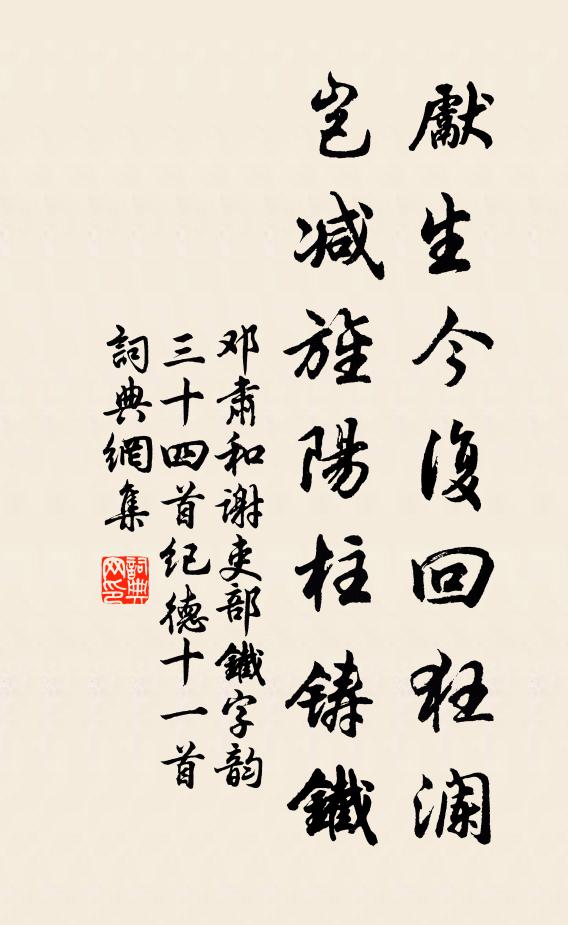 獻生今復回狂瀾
豈減旌陽柱鑄鐵
邓肃和谢吏部鐵字韵
三十四首纪德十一首
詞典網集
詞典
网印